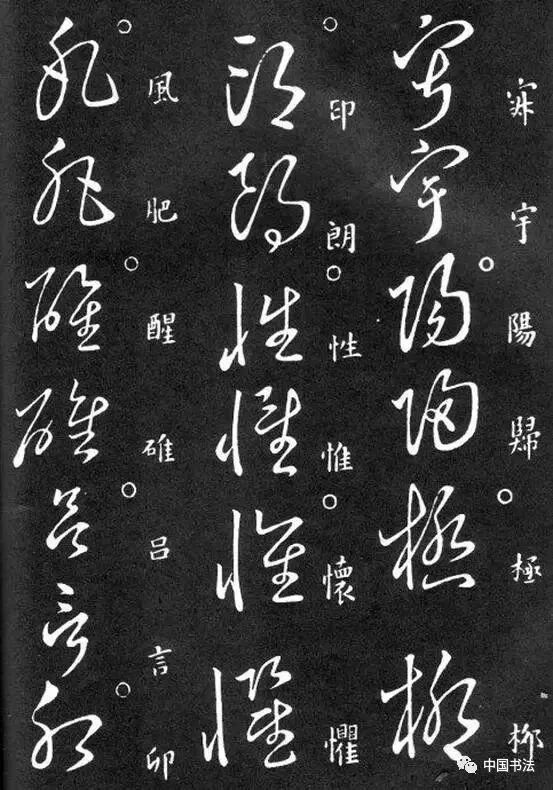 宇陽歸極柳
印朗性惟懷懼
風肥醒碓呂言卯
中国书法